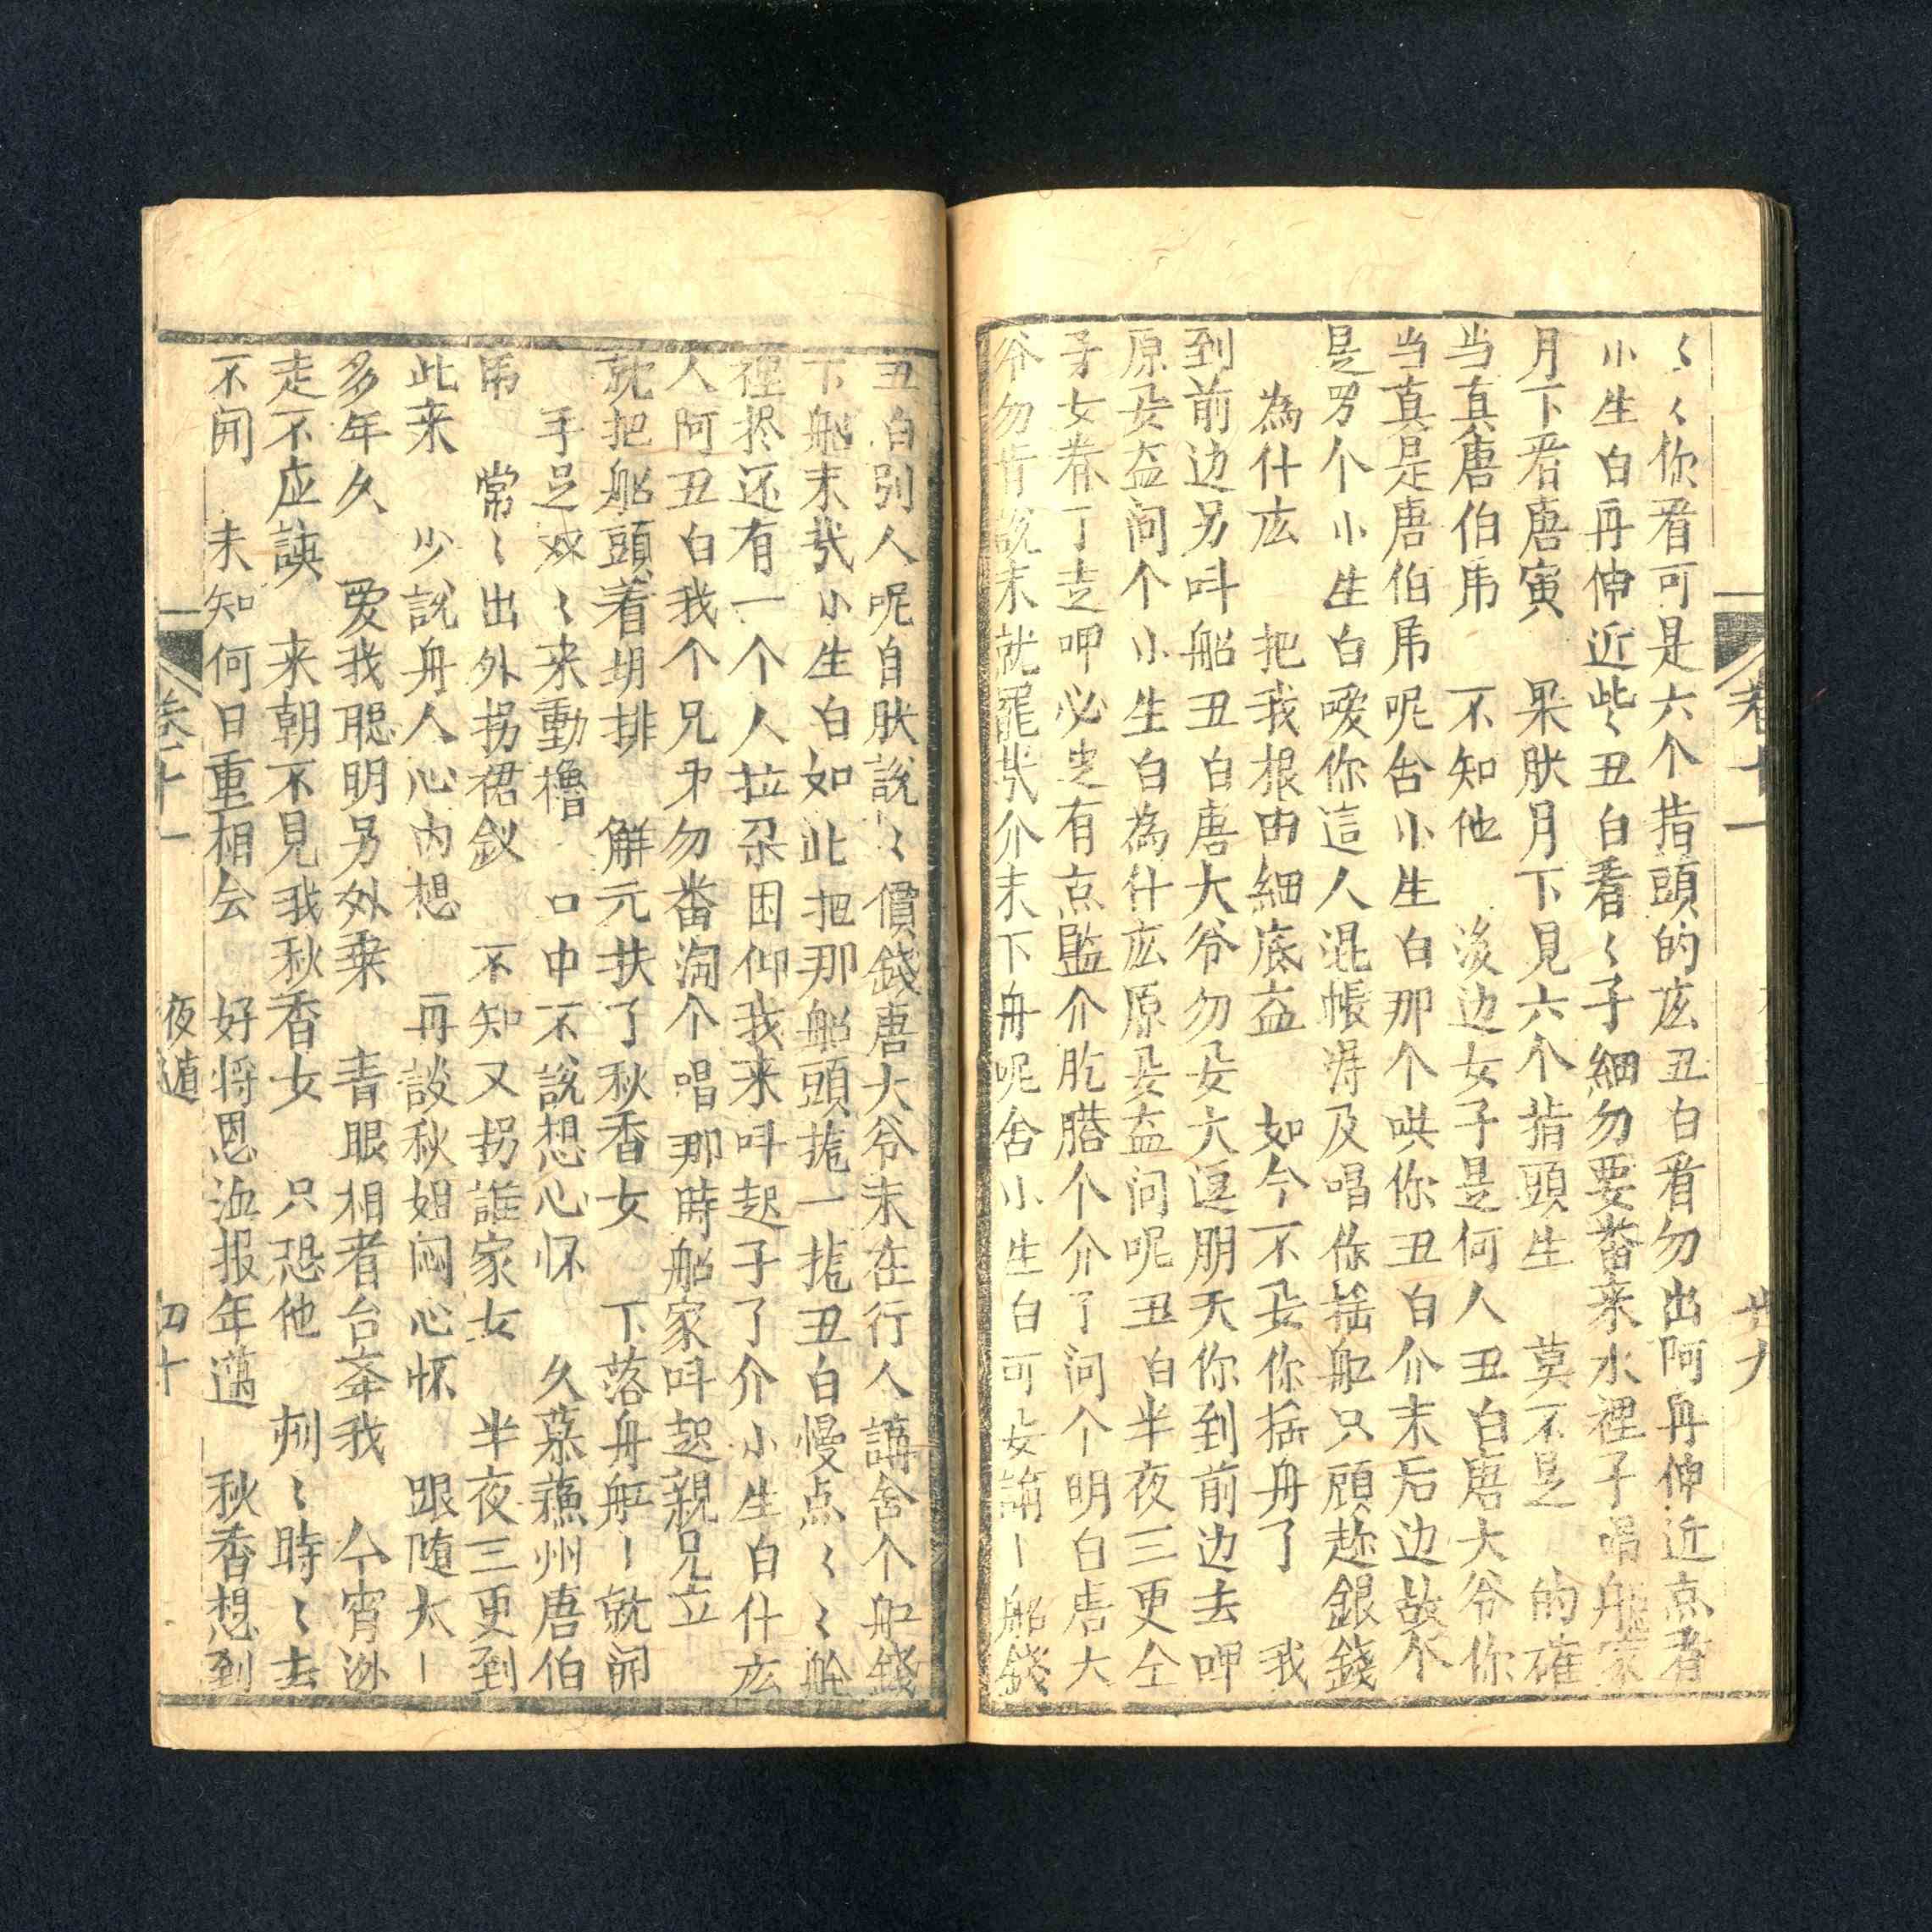 卷十一
廿九
〻〻你看可是六个指頭的庅丑白看勿出阿再伸近点看
小生白再伸近些丑白看〻子細勿要番来水裡子唱船家
月下看唐寅 果肰月下見六个指頭生 莫不是 的確
当真唐伯乕 不知他 後边女子是何人丑白唐大爷你
当真是唐伯乕呢舍小生白那个哄你丑白介末后边故个
是罗个小生白嗳你這人混帳得及唱你摇船只顧趂銀錢
為什庅 把我根由細底盘 如今不要你摇舟了 我
到前边另叫船丑白唐大爷勿要六逗朋天你到前边去呷
原要盘问个小生白為什庅原要盘问呢丑白半夜三更仝
子女眷丁走呷必定有点尷介肐腊个介了问个明白唐大
爷勿肯說末就罷哉介末下舟呢舍小生白可要講丨船錢
丑白别人呢自肰說〻價錢唐大爷末在行人講舍个船錢
下船末哉小生白如此把那船頭㧌一㧌丑白慢点〻〻舱
裡丞还有一个人拉朶困仰我来叫起子了介小生白什庅
人阿丑白我个兄弟勿番淘个唱那時船家叫起親兄立
就把船頭着垻排 觧元扶了秋香女 下落舟船丨就開
手足双〻来動櫓 口中不說想心怀 久慕蘓州唐伯
乕 常〻出外拐裙釵 不知又拐誰家女 半夜三更到
此来 少說舟人心内想 再談秋姐闷心怀 跟随大丨
多年久 愛我聪明另外乘 青眼相看台峯我 今宵逊
走不应該 来朝不見我秋香女 只恐他 刺〻時〻去
不開 未知何日重相会 好将恩洫报年邁 秋香想到
卷十一
夜遁
四十